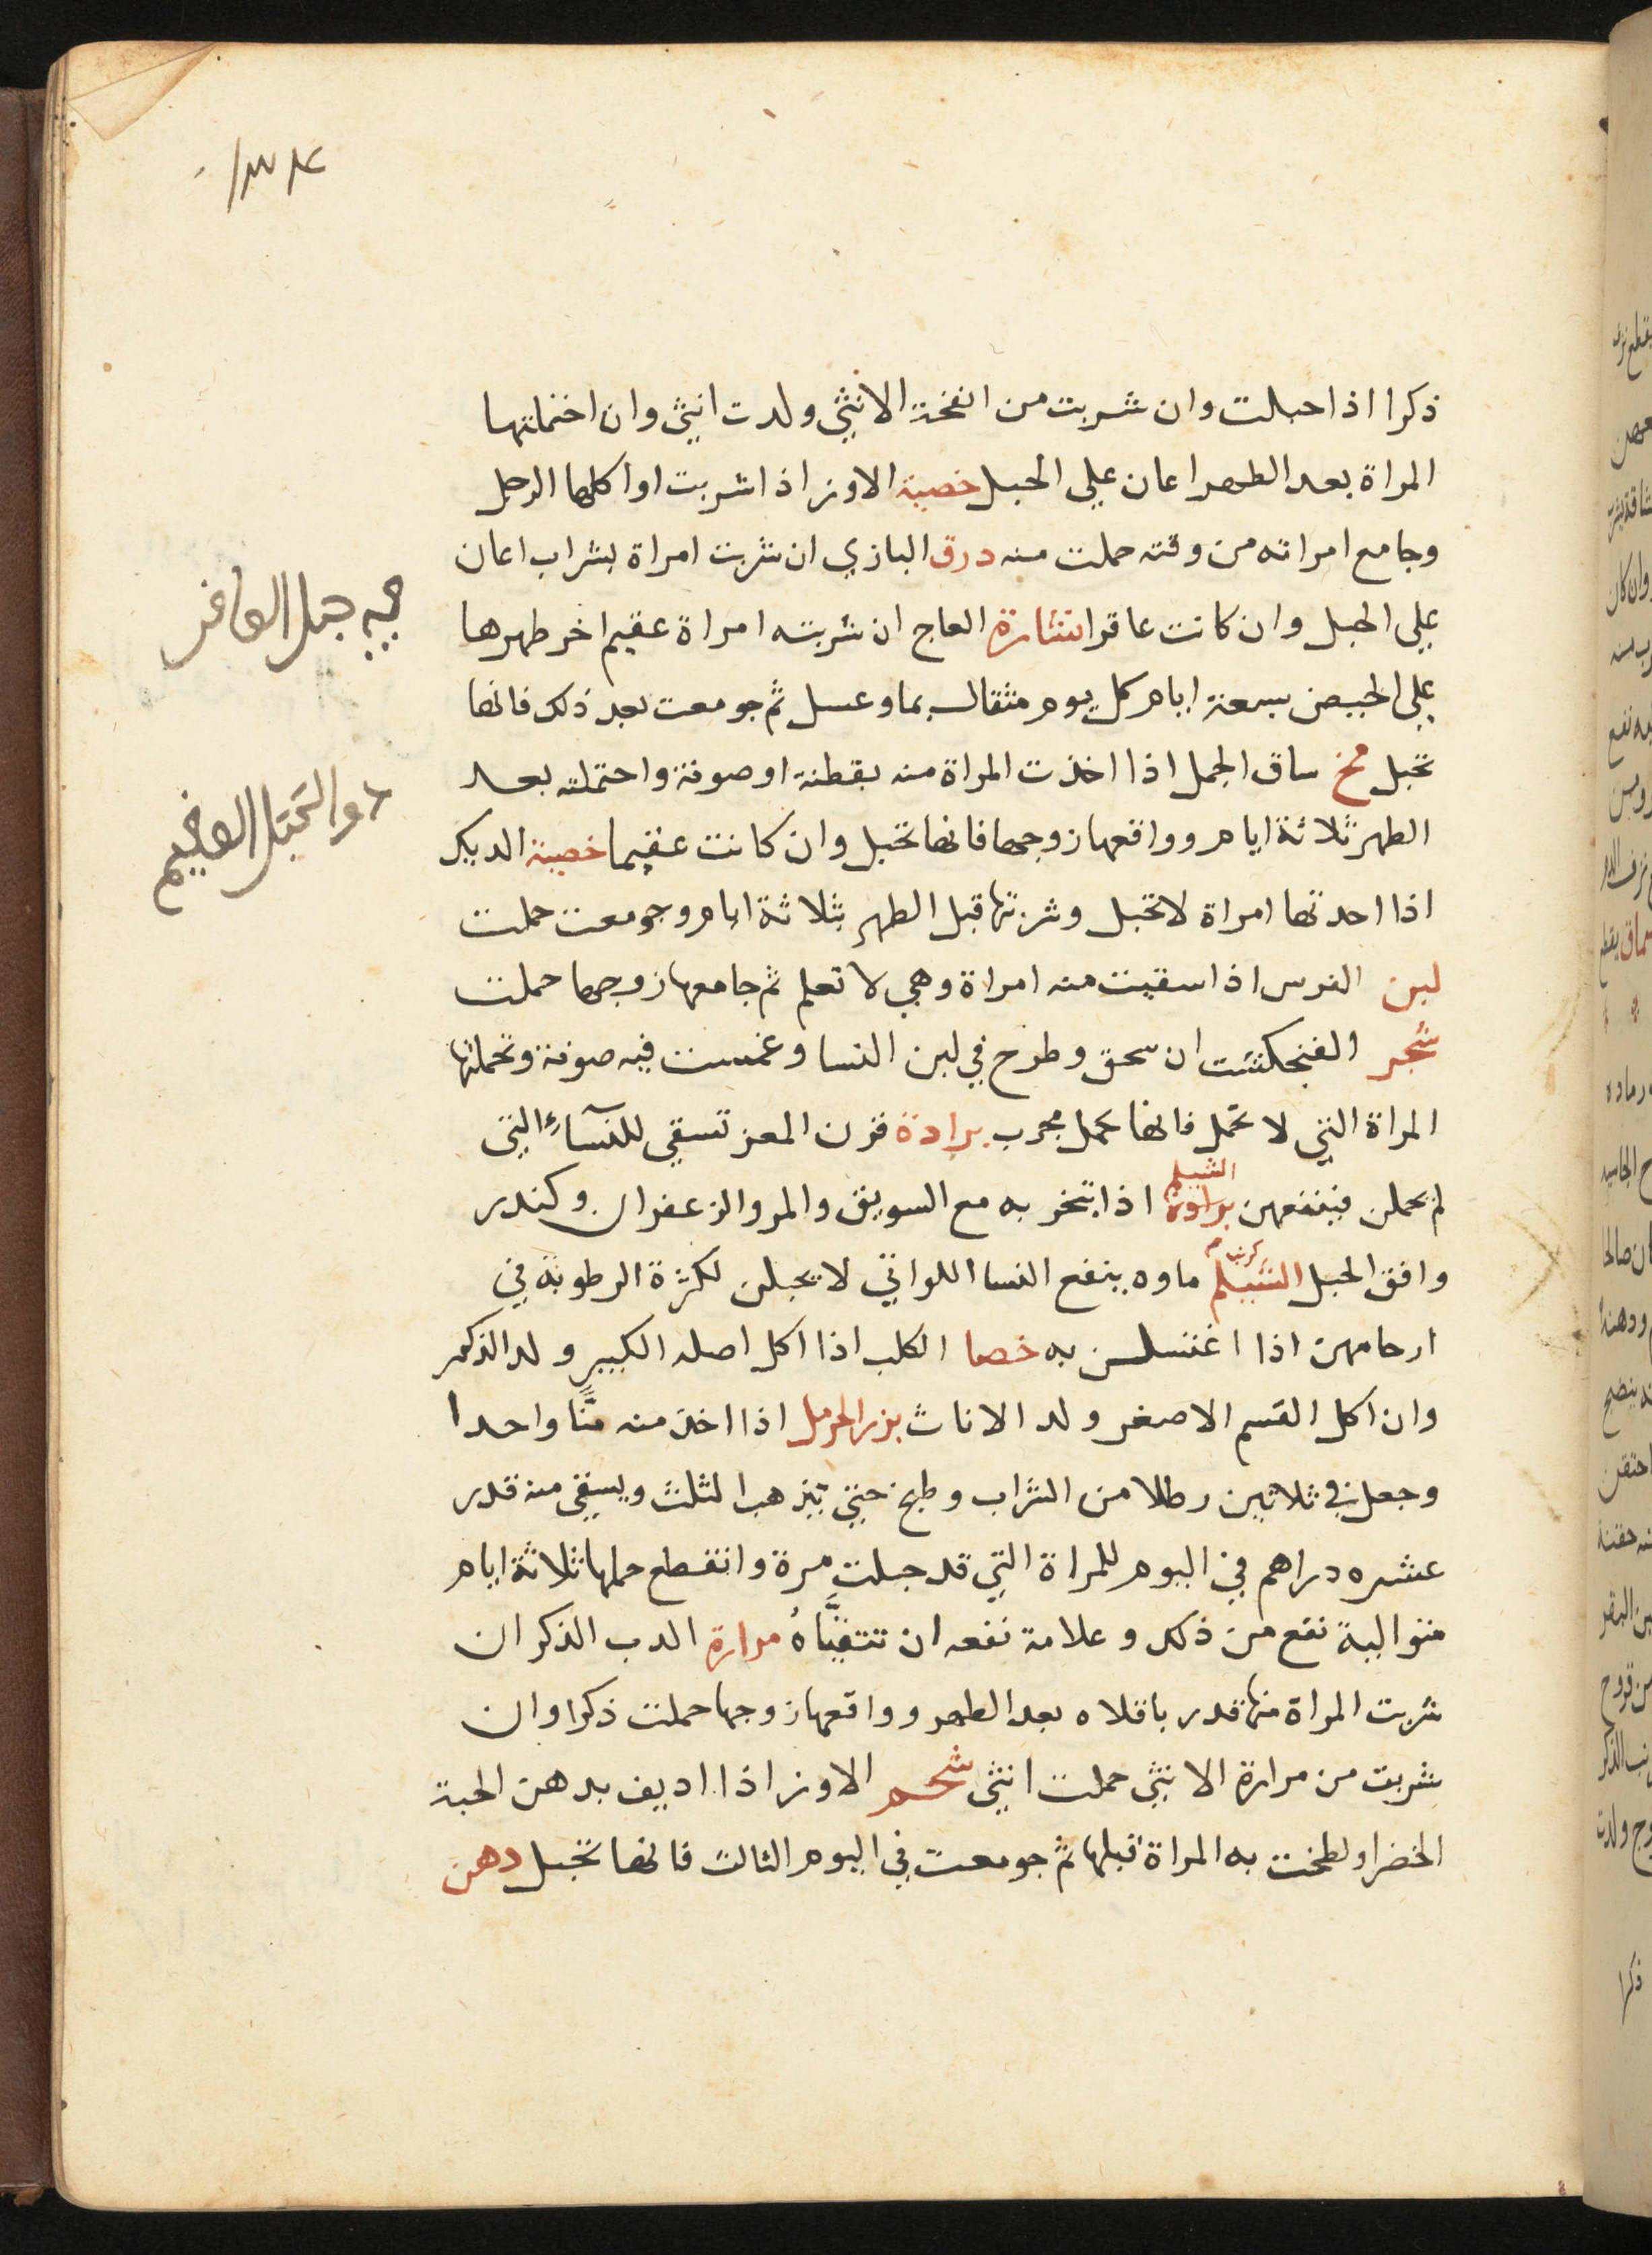 ١٣٤
ذكرا اذا حبلت وان شربت من انفخة الانثي ولدت انيثي وان احتملتها
المراة بعد الطهر اعان علي الحبل خصية الاوز اذا شربت او اكلها الرجل
وجامع امراته من وقته حملت منه درق البازي ان شربت امراة بشراب اعان
علي الحبل وان كانت عاقرا نشارة العاج ان شربته امراة عقيم اخر طهرها
علي الحيض سبعة ايام كل يوم مثقال بما وعسل ثم جومعت بعد ذلك فانها
تحبل مخ ساق الجمل اذا اخذت المراة منه بقطنة او صوفة واحتملته بعد
الطهر ثلاثة ايام وواقعها زوجها فانها تحبل وان كانت عقيما خصية الديك
اذا اخذتها امراة لا تحبل وشربتها قبل الطهر بثلاثة ايام وجومعت حملت
لبن الفرس اذا سقيت منه امراة وهي لا تعلم ثم جامعها زوجها حملت
شجر الفنجكشت ان سحق وطرح في لبن النسا وغمست فيه صوفة وتحملتها
المراة التي لا تحمل فانها تحمل مجرب برادة قرن المعز تسقي للنسآء التي
لم يحملن فينفعهن برادة الشيلم اذا تبخر به مع السويق والمر والزعفران وكندر
وافق الحبل الشيلم ماوه ينفع النسا اللواتي لا يحبلن لكثرة الرطوبة في
ارحامهن اذا اغتسلن به خصا الكلب اذا اكل اصله الكبير ولد الذكر
وان اكل القسم الاصغر ولد الاناث بزر الحرمل اذا اخذ منه منًّا واحدا
وجعل في ثلاثين رطلا من الشراب وطبخ حتي يذهب الثلث ويسقي منه قدر
عشره دراهم في اليوم للمراة التي قد حبلت مرة وانقطع حملها ثلاثة ايام
متوالية نفع من ذلك وعلامة نفعه ان تتقيَّاهُ مرارة الدب الذكر ان
شربت المراة منها قدر باقلاه بعد الطهر وواقعها زوجها حملت ذكرا وان
شربت من مرارة الانثي حملت انثي شحم الاوز اذا اديف بدهن الحبة
الخضرا ولطخت به المراة قبلها ثم جومعت في اليوم الثالث فانها تحبل دهن
حبل العاقر
دوا لتحبل العقيم